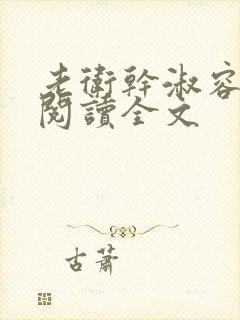 老衛幹淑容
閱讀全文
古蕭